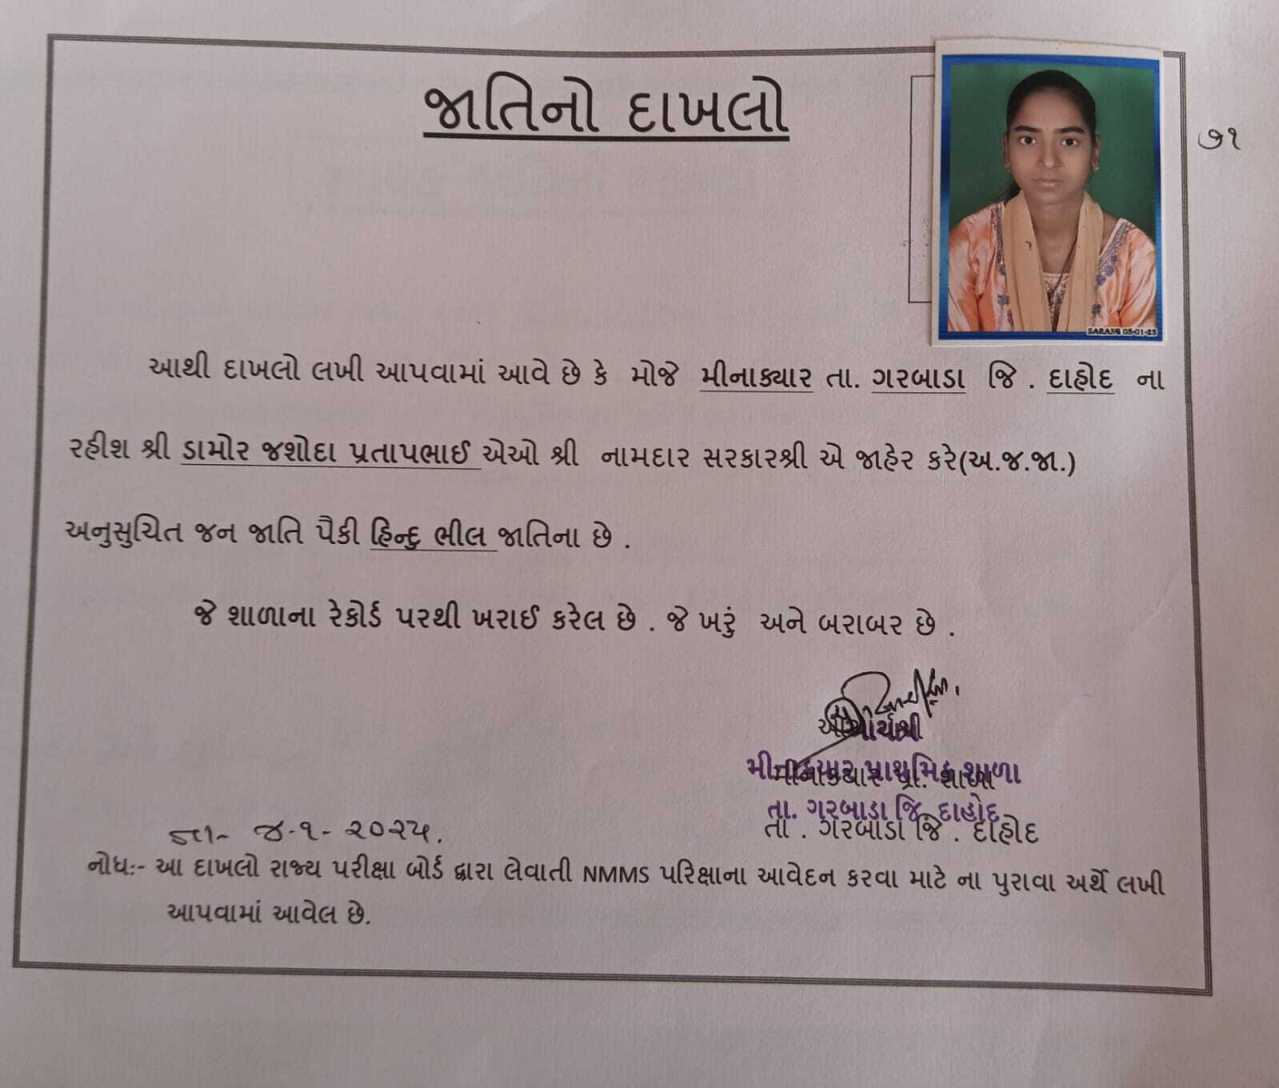 જાતિનો દાખલો
૭૧
SARANG 05-01-25
આથી દાખલો લખી આપવામાં આવે છે કે મોજે મીનાક્યાર તા. ગરબાડા જિ . દાહોદ ના
રહીશ શ્રી ડામોર જશોદા પ્રતાપભાઈ એઓ શ્રી નામદાર સરકારશ્રી એ જાહેર કરે(અ.જ.જા.)
અનુસુચિત જન જાતિ પૈકી હિન્દુ ભીલ જાતિના છે .
જે શાળાના રેકોર્ડ પરથી ખરાઈ કરેલ છે . જે ખરું અને બરાબર છે .
આચાર્યશ્રી
મીનાક્યાર પ્રાથમિક શાળા
મીનાક્યાર પ્રા. શાળા
તા. ગરબાડા જિ. દાહોદ
તા . ગરબાડા જિ . દાહોદ
તા- ૪-૧-૨૦૨૫.
નોધ:- આ દાખલો રાજ્ય પરીક્ષા બોર્ડ દ્વારા લેવાતી NMMS પરિક્ષાના આવેદન કરવા માટે ના પુરાવા અર્થે લખી
આપવામાં આવેલ છે.